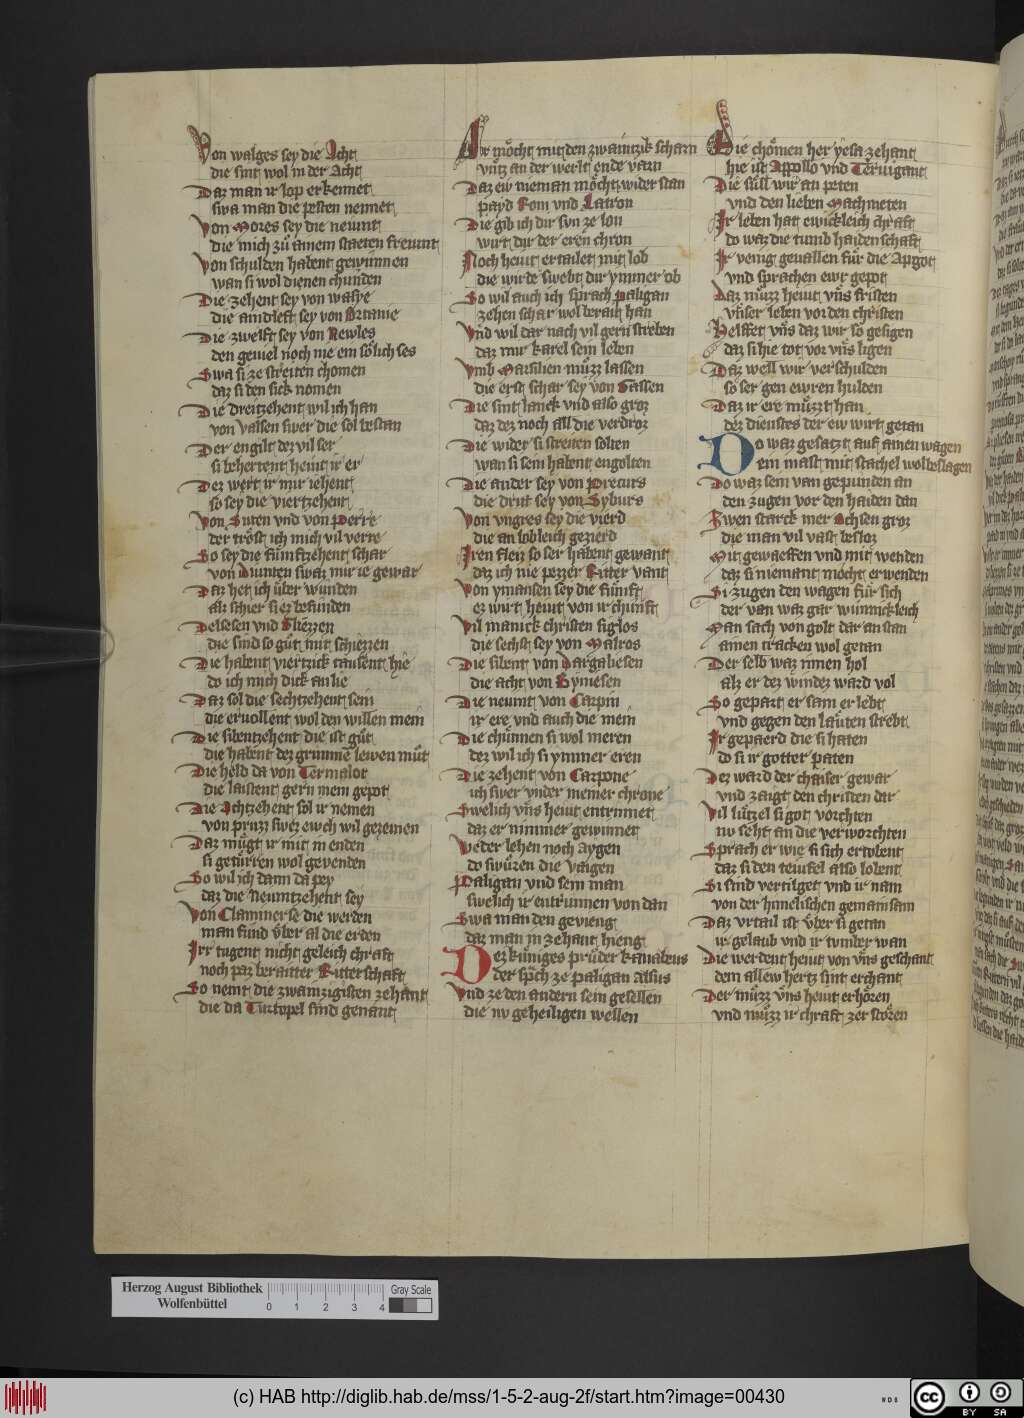 Von walges sey die Acht
die sint wol in der Acht
Daz man ir lop erkennet
swa man die pesten nennet
Von Mores sey die neunt
die mich zů ainem staeten freunt
Von schulden habent gewunnen
wan si wol dienen chunden
Die zehent sey von walye
die aindleft sey von Britanie
Die zwelft sey von Newles
den geuiel noch nie ein sölich ses
Swa si ze streiten chomen
daz si den sick nomen
Die dreitzehent wil ich han
von valsen swer die sol bestan
Der engilt dez vil ser
si behertent heint ir er
Dez wert ir mir iehent
so sey die viertzehent
Von Suren vnd von Perre
der tröst ich mich vil verre
So sey die fünftzehent schar
von Diunten swaz mir ie gewar
Daz het ich über wunden
als schier si ez befunden
Delsesen vnd
die sind so gůt mit schiezzen
Die habent viertzick tausent hye
do ich mich dick an lie
Daz sol die sechtzehent sein
die eruollent wol den willen mein
Die sibentzehent die ist gůt
die habent dez grimme lewen můt
Die held da von Termalot
die laistent gern mein gepot
Die Achtzehent sol ir nemen
von pruzz swez ewch wil gezemen
Daz mügt ir mit in enden
si getürren wol gevenden
So wil ich dann da pey
daz die Neuntzehent sey
Von Clammerse die werden
man find vber al die erden
Irr tugent nicht geleich chraft
noch paz beraitter Ritterschaft
So nemt die zwainzigisten zehant
die da Turtopel sind genant
Ir möcht mit den zwaintzik scharn
vntz an der werlt ende varn
Daz ew nieman möcht wider stan
payd Rom vnd Latron
Die gib ich dir sun ze lon
wirt dir der eren chron
Noch heut ertailet mit lob
die wirde swebt dir ymmer ob
So wil auch ich sprach Paligan
zehen schar wol berait han
Vnd wil dar nach vil gern streben
daz mir karel sein leben
Vmb Marsilien můzz lassen
die erst schar sey von Gassen
Die sint lanck vnd also groz
daz dez noch all die verdroz
Die wider si streiten solten
wan si sein habent engolten
Die ander sey von Precurs
die drit sey von Syburs
Von vngres sey die vierd
die an lobleich gezierd
Iren fleiz so ser habent gewant
daz ich nie pezzer Ritter vant
Von ymansen sey die fünft
ez wirt heint von ir chunft
Vil manick christen siglos
die sechst sey von Malros
Die sibent von Dargaliesen
die acht von Eyniesen
Die neunt von Carpin
ir ere vnd auch die mein
Die chünnen si wol meren
dez wil ich si ymmer eren
Die zehent von Carpone
ich swer vnder meiner chrone
Swelich vns heint entrinnet
daz er nimmer gewinnet
Weder lehen noch aygen
do swůren die vaigen
Paligan vnd sein man
swelich ir entrunnen von dan
Swa man den gevieng
daz man in zehant hieng
Dez küniges průder kanabeus
der sprach ze paligan alsus
Vnd ze den andern sein gesellen
die nv geheiligen wellen
Die chömen her yesa zehant
hie ist Appollo vnd Tervigant
Die süll wir an peten
vnd den lieben Machmeten
Ir leben hat ewickleich chraft
do waz die tumb haidenschaft
Ir venig geuallen für die Apgot
vnd sprachen ewr gepot
Daz můzz heint vns fristen
vnser leben vor den christen
Helffet vns daz wir so gesigen
daz si hie tot vor vns ligen
Daz well wir verschulden
so ser gen ewren hulden
Daz ir ere můzzt han
dez dienstes der ew wirt getan
Do waz gesatzt auf ainen wagen
ein mast mit stachel wol beslagen
Do waz sein van gepunden an
den zugen vor den haiden dan
Zwen starck mer Ochsen groz
die man vil vast besloz
Mit gewaeffen vnd mit wenden
daz si niemant möcht erwenden
Si zugen den wagen für sich
der van waz gar wunnickleich
Man sach von golt dar an stan
ainen tracken wol getan
Der selb waz innen hol
als er dez windez ward vol
So gepart er sam er lebt
vnd gegen den lauten strebt
Ir gepaerd die si haten
do si ir gotter paten
Dez ward der chaiser gewar
vnd zaigt den christen dar
Vil lützel si got vorchten
nv seht an die verworchten
Sprach er wie si sich ertobent
daz si den teiufel also lobent
Si sind vertilget vnd ir nam
von der himelischen gemainsam
Daz vrtail ist vber si getan
ir gelaub vnd ir tumber wan
Die werdent heint von vns geschant
dem allew hertz sint erchant
Der můzz vns heut erhören
vnd můzz ir chraft zer stören
Herzog August Bibliothek
Wolfenbüttel
0 1 2 3 4
Gray Scale
(c) HAB http://diglib.hab.de/mss/1-5-2-aug-2f/start.htm?image=00430
WDB
cc BY SA